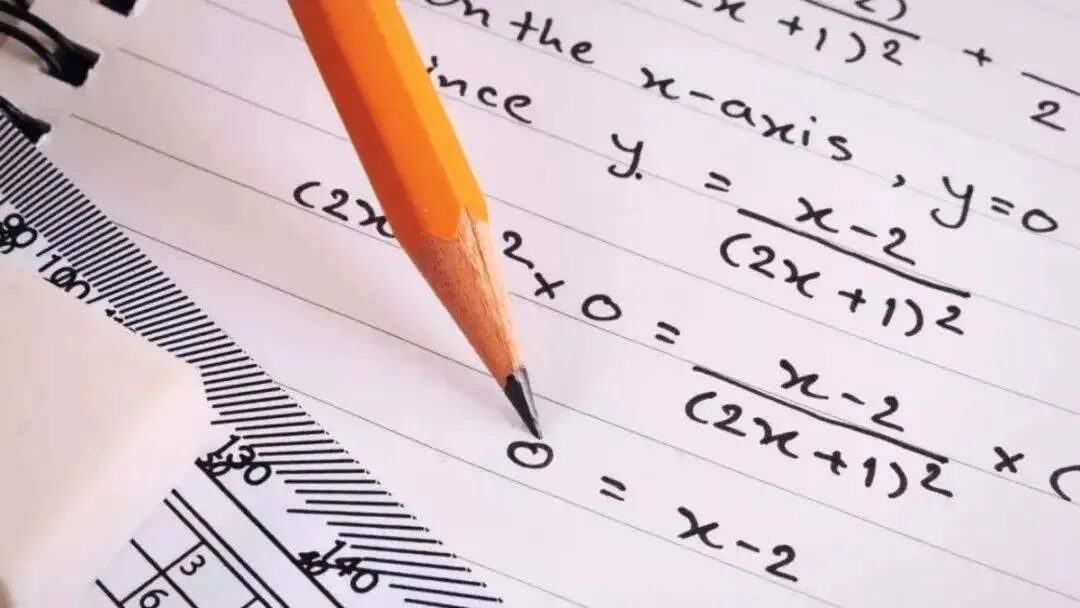 x + 1)² + 2
on the x-axis, y=0
ince y. = x-2 / (2x+1)²
(2x ² × 0 = x-2 / (2x+1)² × (
0 = x-2
80
100
130
140
3
6